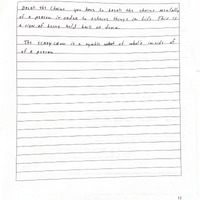 break the chains you have to break the chains mentally
of a person in order to achieve things in life. This is
a view of being held back or down.
The scarecrow is a symbol of what's inside of
of a person